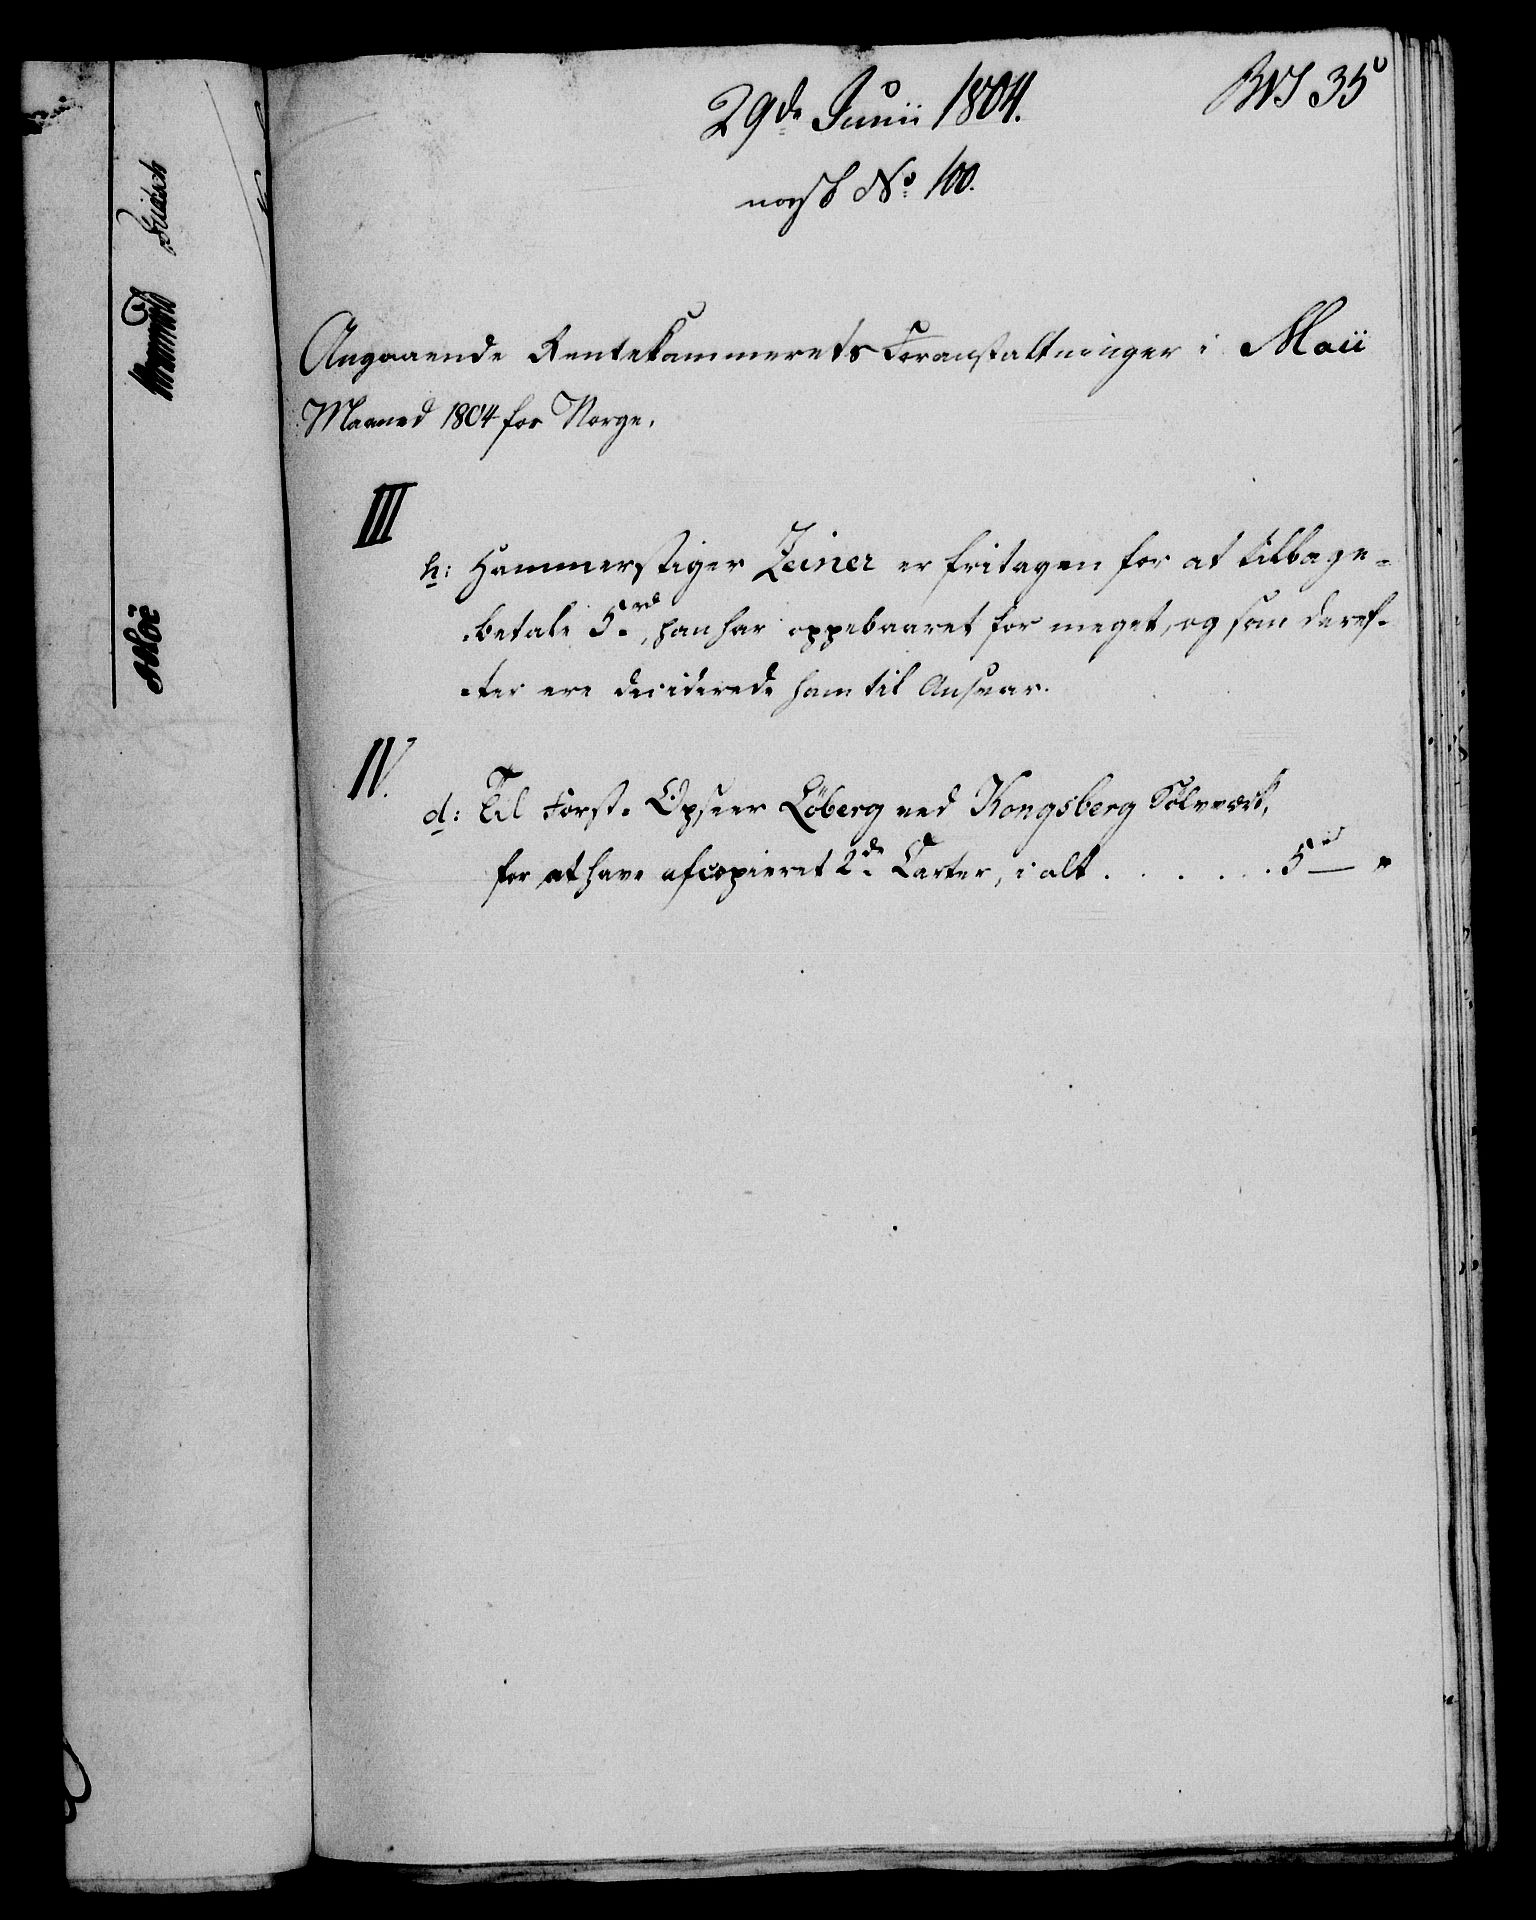 29de Junii 1804.
BVS 35
norsk No 100.
Angaaende Rentekammerets Foranstaltninger i Maii
Maaned 1804 for Norge.
III
h: Hammerstiger Zeiner er fritagen for at tilbage-
betale 5 rd, han har oppebaaret for meget, og som deref-
ter ere deciderede ham til Ansvar.
IV.
d: Til Forst-Opseer Löberg ved Kongsberg Sölvverk,
for at have afcopieret 2de Carter, i alt . . . . . . 5 rd — "